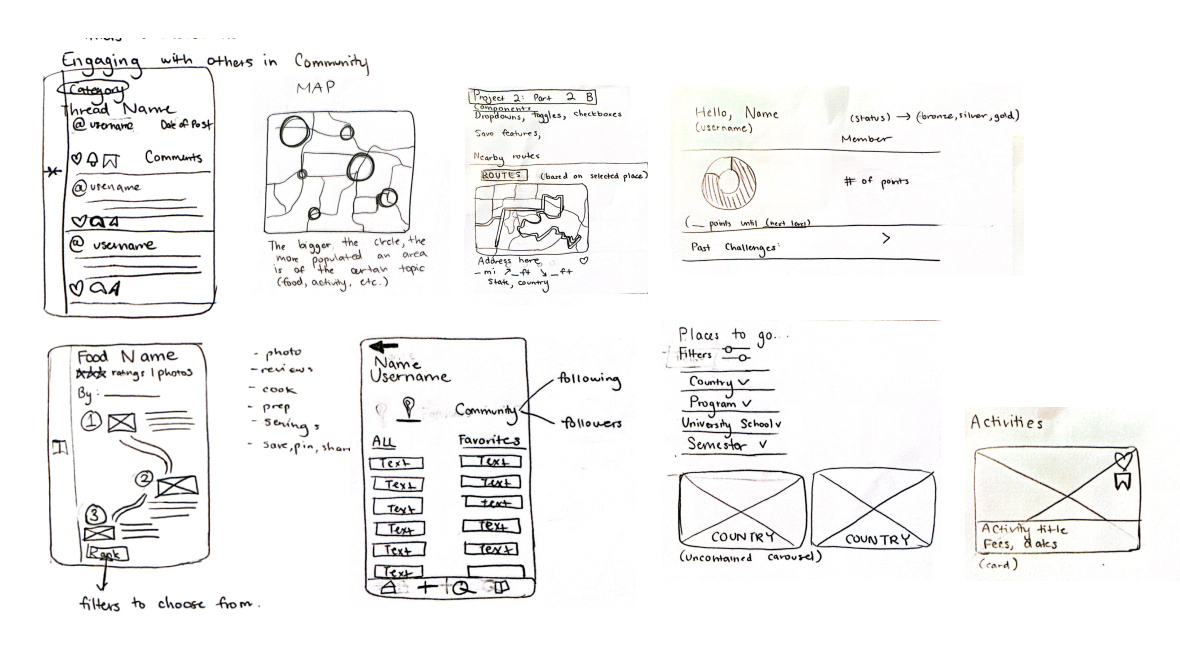 Engaging with others in Community
Category
Thread Name
@ username Date of Post
Comments
@ username
@ username
MAP
The bigger the circle, the
more populated an area
is of the certain topic
(food, activity, etc.)
Project 2: Part 2 B
Components
Dropdowns, Toggles, checkboxes
Save features,
Nearby routes
ROUTES (based on selected place)
Address here
- mi ↗_ft ↘_ft
State, country
Hello, Name
(username)
(status) → (bronze, silver, gold)
Member
# of points
(__ points until (next level)
Past Challenges:
>
Food Name
ratings | photos
By:
1
2
3
Rank
filters to choose from.
- photo
- reviews
- cook
- prep
- servings
- save, pin, share
Name
Username
Community
following
followers
ALL
Favorites
Text
Text
Text
Text
Text
Text
Text
Text
text
Text
Text
Places to go...
Filters
Country
Program
University School
Semester
COUNTRY
COUNTRY
(Uncontained carousel)
Activities
Activity title
Fees, dates
(card)